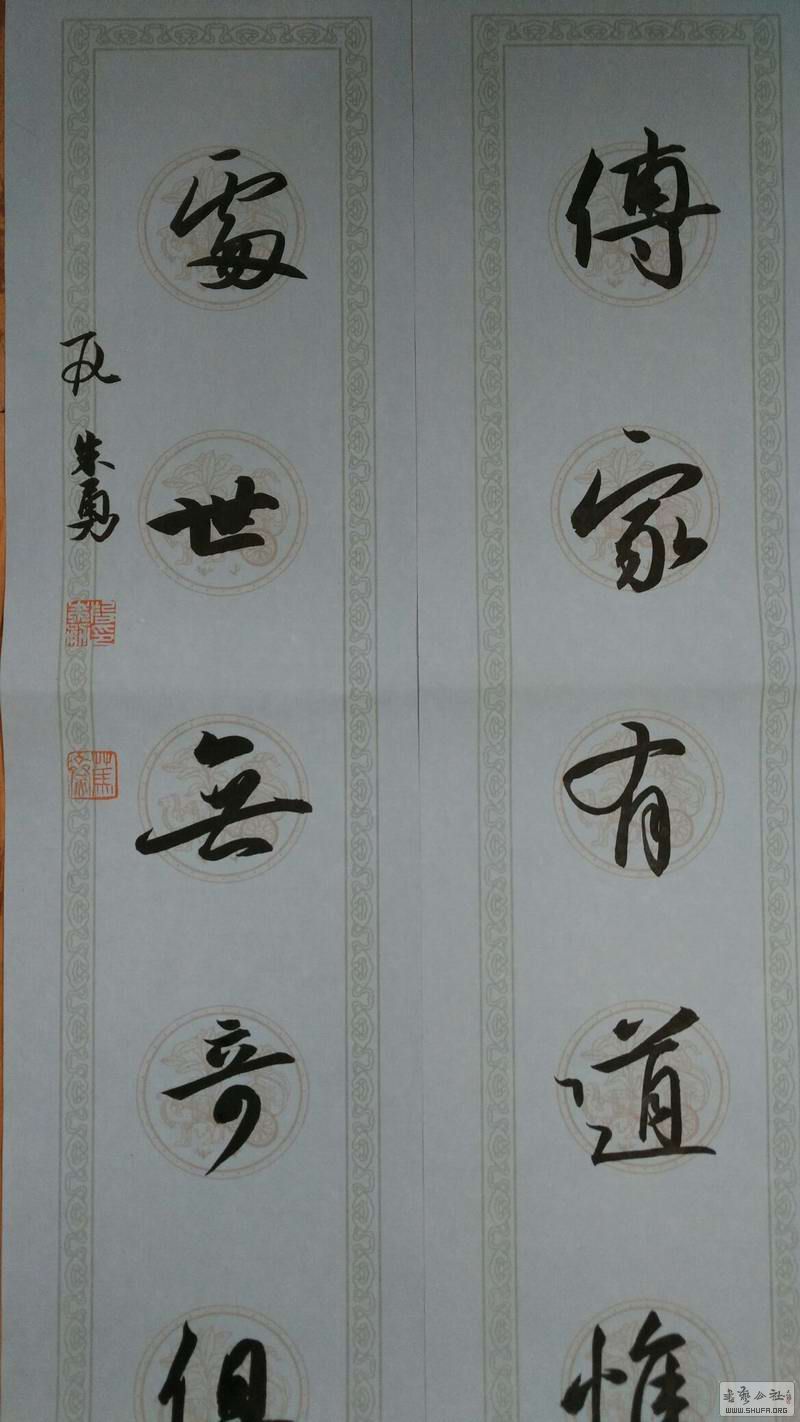 傳家有道惟
處世無奇但
朱勇
書藝公社
WWW.SHUFA.ORG